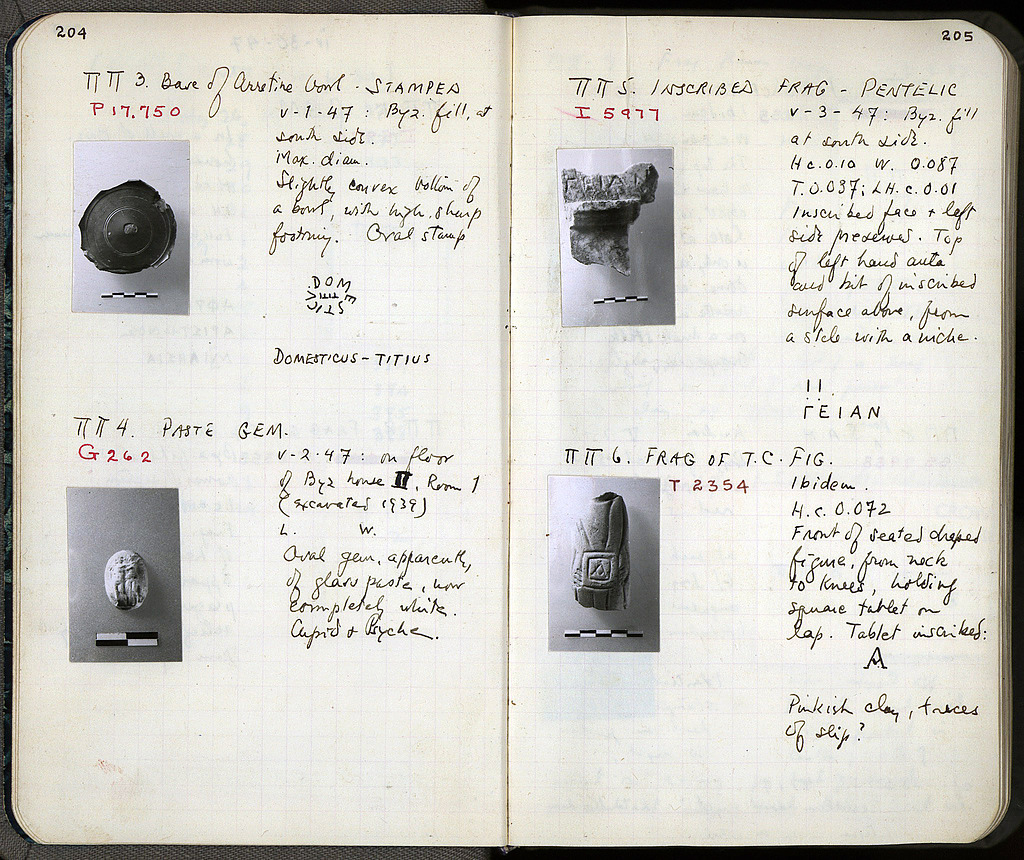 204
ΠΠ 3. Base of Arretine bowl - STAMPED
P 17.750
V-1-47: Byz. fill, at
south side.
Max. diam.
Slightly convex bottom of
a bowl, with high, sharp
footring. Oval stamp
.DOM
DOMESTICUS - TITIUS
ΠΠ 4. PASTE GEM.
G 262
V-2-47: on floor
of Byz house II, Room 1
(excavated 1939)
L. W.
Oval gem, apparently
of glass paste, now
completely white.
Cupid + Psyche.
205
ΠΠ 5. INSCRIBED FRAG - PENTELIC
I 5977
V-3-47: Byz. fill
at south side.
H c. 0.10 W. 0.087
T. 0.037; LH. c. 0.01
Inscribed face + left
side preserved. Top
of left hand anta
and bit of inscribed
surface above, from
a stele with a niche.
ΓΕΙΑΝ
ΠΠ 6. FRAG OF T.C. FIG.
T 2354
Ibidem.
H. c. 0.072
Front of seated draped
figure, from neck
to knees, holding
square tablet on
lap. Tablet inscribed:
A
Pinkish clay, traces
of slip?